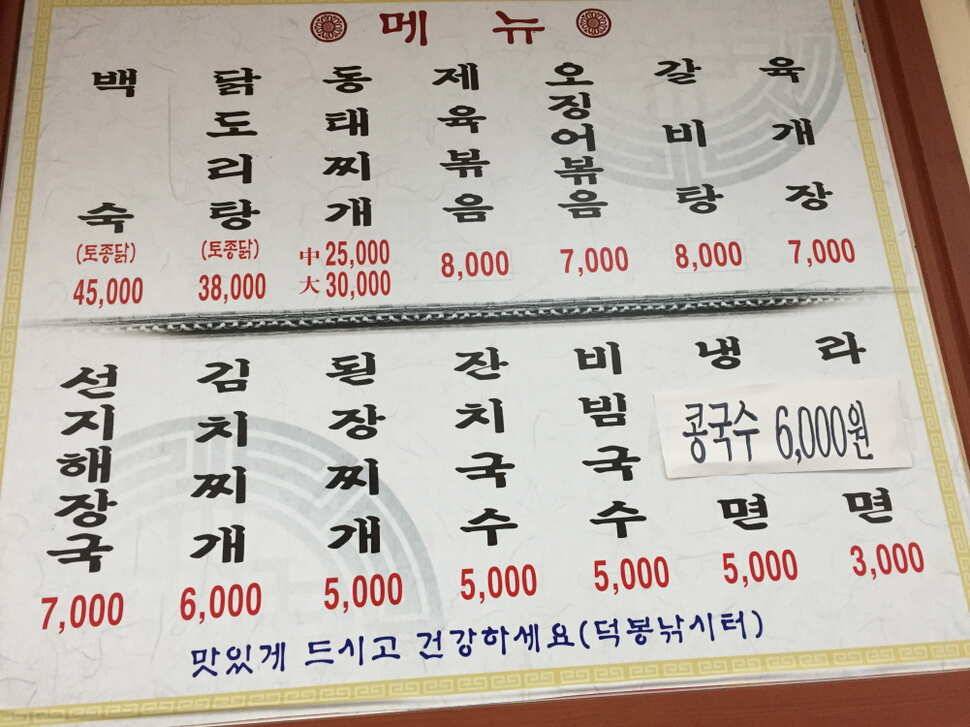 메뉴
백숙
(토종닭)
45,000
닭도리탕
(토종닭)
38,000
동태찌개
中 25,000
大 30,000
제육볶음
8,000
오징어볶음
7,000
갈비탕
8,000
육개장
7,000
선지해장국
7,000
김치찌개
6,000
된장찌개
5,000
잔치국수
5,000
비빔국수
5,000
냉면
5,000
라면
3,000
콩국수 6,000원
맛있게 드시고 건강하세요(덕봉낚시터)